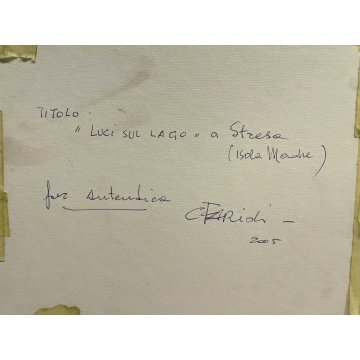 TITOLO:
"LUCI SUL LAGO" a Stresa
(Isola Madre)
per autentica
2005